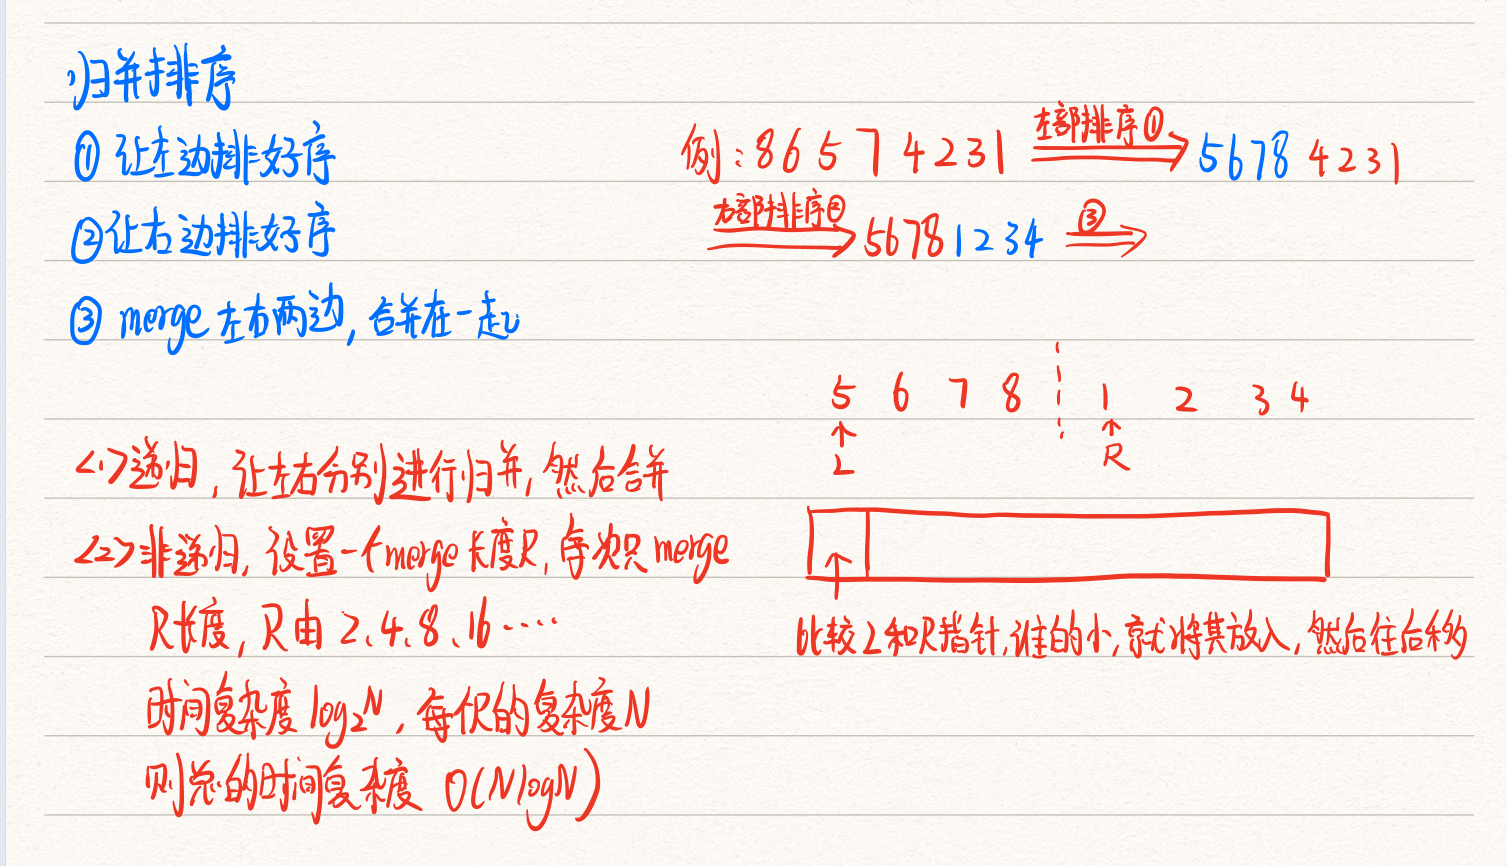 归并排序
①让左边排好序
②让右边排好序
③ merge左右两边,合并在一起
例:86574231 左部排序① 56784231
右部排序② 56781234 ③
5 6 7 8 1 2 3 4
L R
比较L和R指针,谁的小,就将其放入,然后往后移
<1>递归,让左右分别进行归并,然后合并
<2>非递归,设置一个merge长度R,每次只merge
R长度,R由2、4、8、16····
时间复杂度log₂N,每次的复杂度N
则总的时间复杂度 O(NlogN)